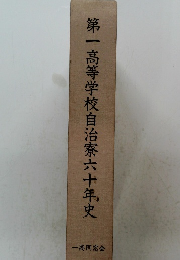 第一高等学校自治寮六十年史
一高同窓会